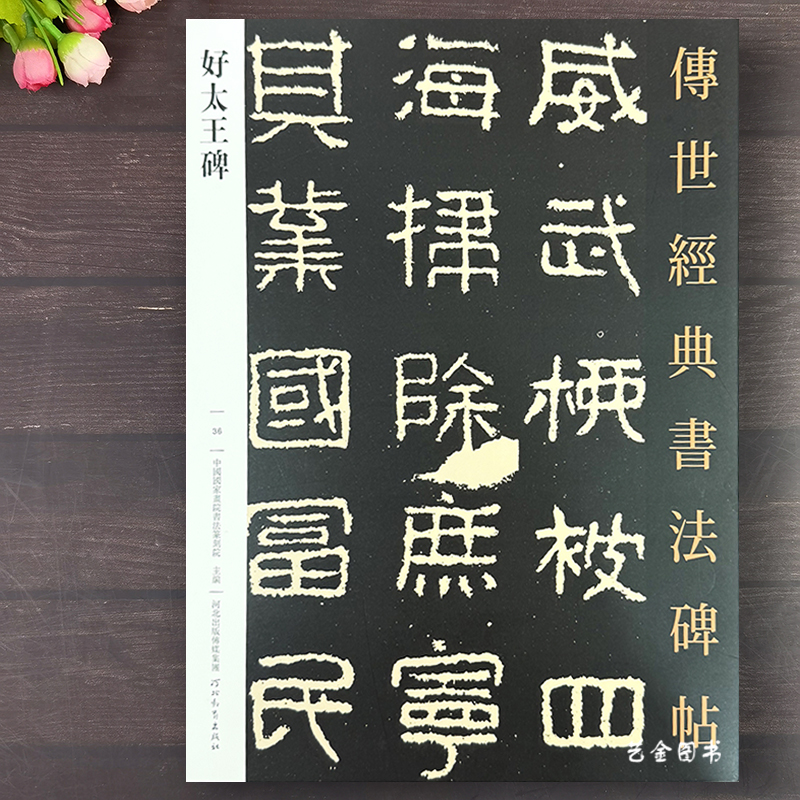 傳世經典書法碑帖
威武柀四
海掃除庶寧
其業國富民
好太王碑
36
中國國家畫院書法篆刻院 主編
河北出版傳媒集團 河北教育出版社
艺金图书